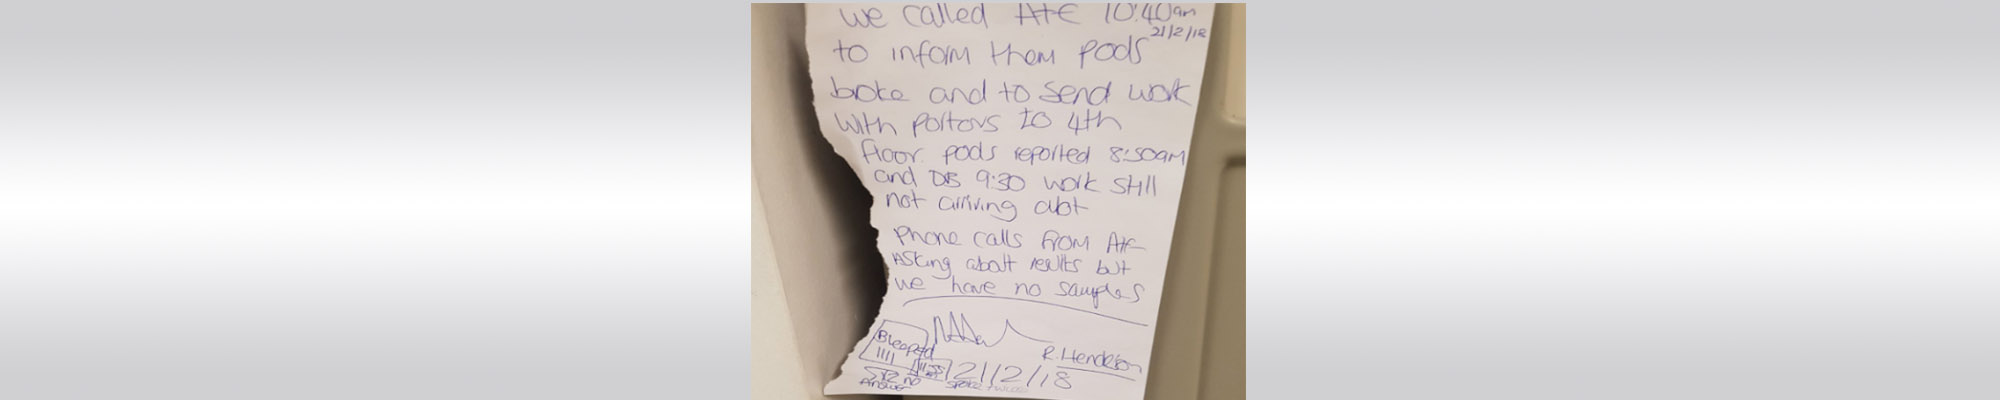 we called A+E 10:40am
21/2/18
to inform them pods
broke and to send work
with portors to 4th
floor. pods reported 8:50am
and DS 9:30 work still
not arriving abt
phone calls from A+E
Asking about results but
we have no samples
Bleeped
1111
R. Henderson
x2 no
Answer
21/2/18